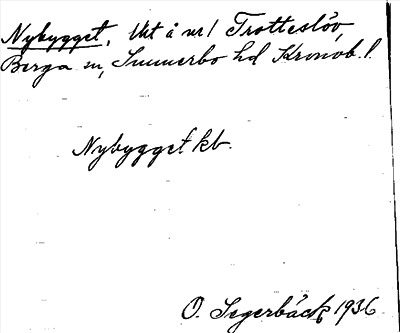 Nybygget, Uxt å nr 1 Trotteslöv,
Berga sn, Sunnerbo hd Kronob. l.
Nybygget kb.
O. Segerbäck 1936